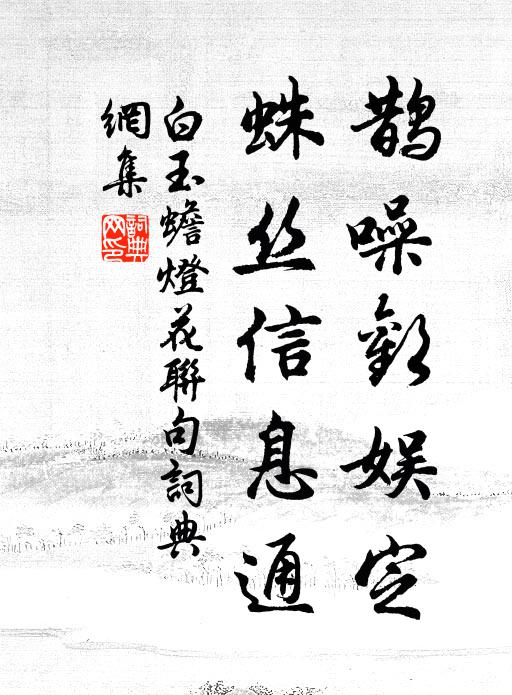 鹊噪歡娱定
蛛丝信息通
白玉蟾燈花聯句詞典
網集
詞典
网印